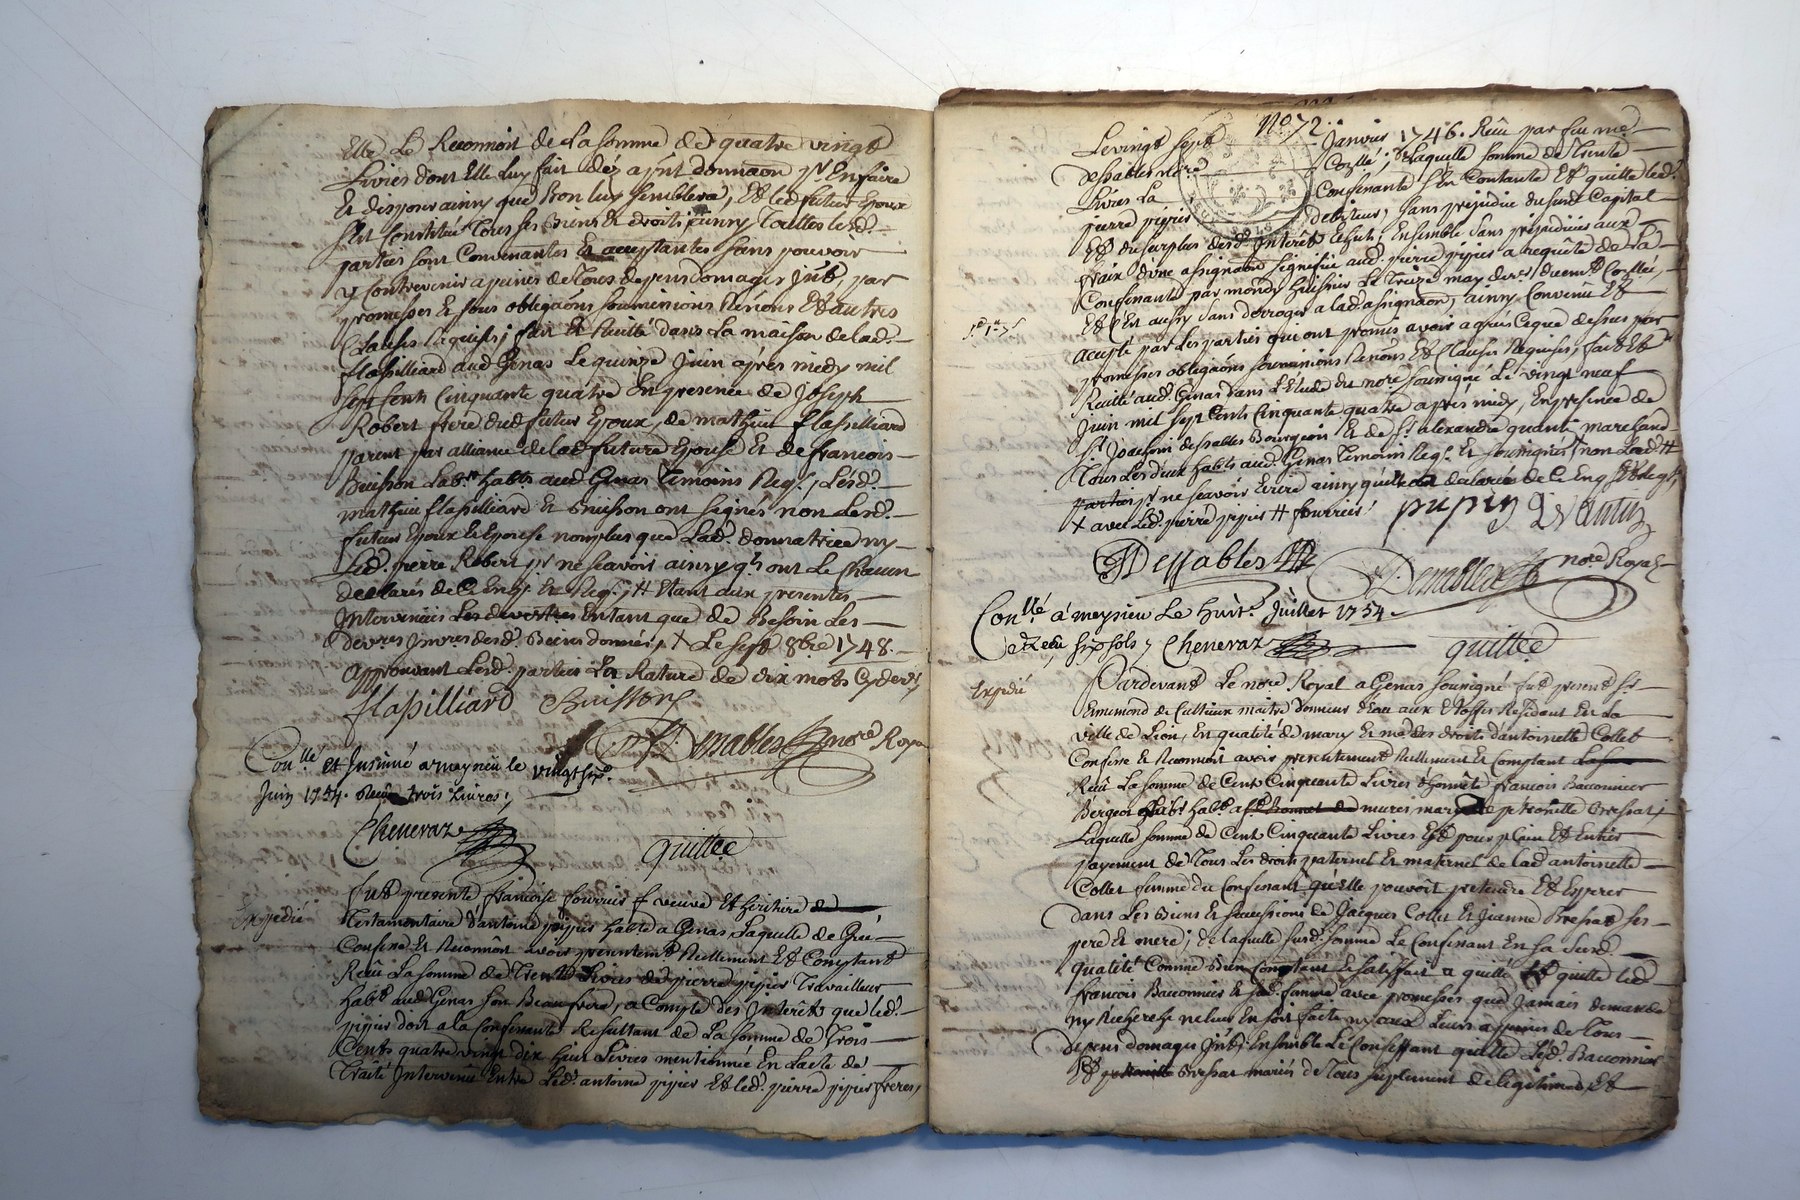 Elle Le Reconnoit de La somme de quatre vingt
Livres dont Elle luy fait déz apnt donnaon pr En faire
Et disposer ainsy que bon luy semblera, Et led. futur Epoux
s'Est Constitué Tous ses Biens Et droits ainsy Touttes lesd.
parties sont Convenantes Et acceptantes sans pouvoir
y Contrevenir a peines de Tous depens domages Intts par
promesses Et sous obligaons soumissions Renons Et autres
Clauses Requises, fait Et Recitté dans La maison de lad.
flassilliard aud Genas Le quinze Juin après midy mil
sept Cents Cinquante quatre En presence de Joseph
Robert frere dud futur Epoux, de mathieu flassilliard
parent par alliance de lad future Epouse Et de francois
Buisson Labr habts aud Genas Temoins Reqs, Lesd.
mathieu flassilliard Et Buisson ont signés non Lesd.
futurs Epoux Et Epouse non plus que Lad. donnatrice ny
Led. pierre Robert pr ne scavoir ainsy qls ont Le Chacun
declarés de Ce Enqs. Et Reqs, # Etant aux presentes
Intervenües Entant que de Besoin Les
des. Biens donnés, X Le sept 8bre 1748.
approuvant Lesd. parties La Rature de dix mots Cy ders
flassilliard Buisson
Demables nore Royal
Conllé et Insinué a meyzieu le vingt six
Juin 1754. Receu trois Livres;
Cheneraz
quittce
Expedié
fut presente francoise fourrier veuve Et heritiere
Testamentaire d'antoine pipier habte a Genas Laquelle de Gré
Confesse Et Reconnoit avoir presentemt Reellement Et Comptant
Receu La somme de Trente Livres de pierre pipier Travailleur
habt aud Genas son Beau frere, a Compte des Interêts que led.
pipier doit a la Confessante Resultant de La somme de Trois
Cents quatre vingt dix huit Livres mentionnée En Lacte de
Traité Intervenu Entre Led. antoine pipier Et led. pierre pipier freres,
No 72.
Le vingt sept Janvier 1746. Receu par feu me
Dessables nore Conllé; de Laquelle somme de Trente
Livres La Confessante s'En Contente Et quitte led.
pierre pipier debiteur, sans prejudice du surd. Capital
Et du surplus desd. Interêts Echus, Ensemble sans prejudices aux
fraix d'une assignaon signifiée aud. pierre pipier a requête de La
Confessante par mondy huissier Le Treize may der duemt Conllée,
Et C'Est aussy sans derroger a lad assignaon, ainsy Convenu Et
accepté par Les parties qui ont promis avoir agréé Ceque dessus par
promesses obligaons soumissions Renons Et Clauses Requises, fait Et
Recitté aud. Genas dans L'Etude du nore soussigné Le vingt neuf
Juin mil sept Cents Cinquante quatre apres midy, En presence de
sr Joachim dessables Bourgeois Et de sr alexandre quantin marchand
Tous Les deux habts aud. Genas Temoins Reqs. Et soussignés non Lad #
pr ne scavoir Ecrire ainsy qu'elle a declaré de Ce Enqs Et Reqs,
X avec Led. pierre pipier # fourrier
pupier Quantin
Dessables
Demables nore Royal
Conllé a meyzieu Le huit Juillet 1754.
Receu six sols; Cheneraz
quittce
Expedié
Pardevant Le nore Royal a Genas soussigné fut present sr
Ennemond de Cultieux maitre donneur d'Eau aux Etoffes Residant En La
ville de Lion, En qualité de mary Et me des droits d'antoinette Collet
Confesse Et Reconnoit avoir presentement Reellement Et Comptant
Receu La somme de Cent Cinquante Livres d'honnête francois Baconnier
Berger habt a mures mary de pétronille Bressat;
Laquelle somme de Cent Cinquante Livres Est pour plein Et Entier
payement de Tous Les droits paternel Et maternel de lad antoinette
Collet femme du Confessant qu'elle pouvoit pretendre Et Esperer
dans Les Biens Et successions de Jacques Collet Et Jeanne Bressat ses
pere Et mere; de laquelle susd. somme Le Confessant En sa susd.
qualité Comme Bien Comptant Et satisfait a quitté Et quitte led.
francois Baconnier Et sad. femme avec promesses que Jamais demande
ny Recherche ne leur En soit faite ny aux Leurs a peines de Tous
depens domages Intts, Ensemble Le Confessant quitte Lesd. Baconnier
Et Bressat mariés de Tous suplement de legitimes Et